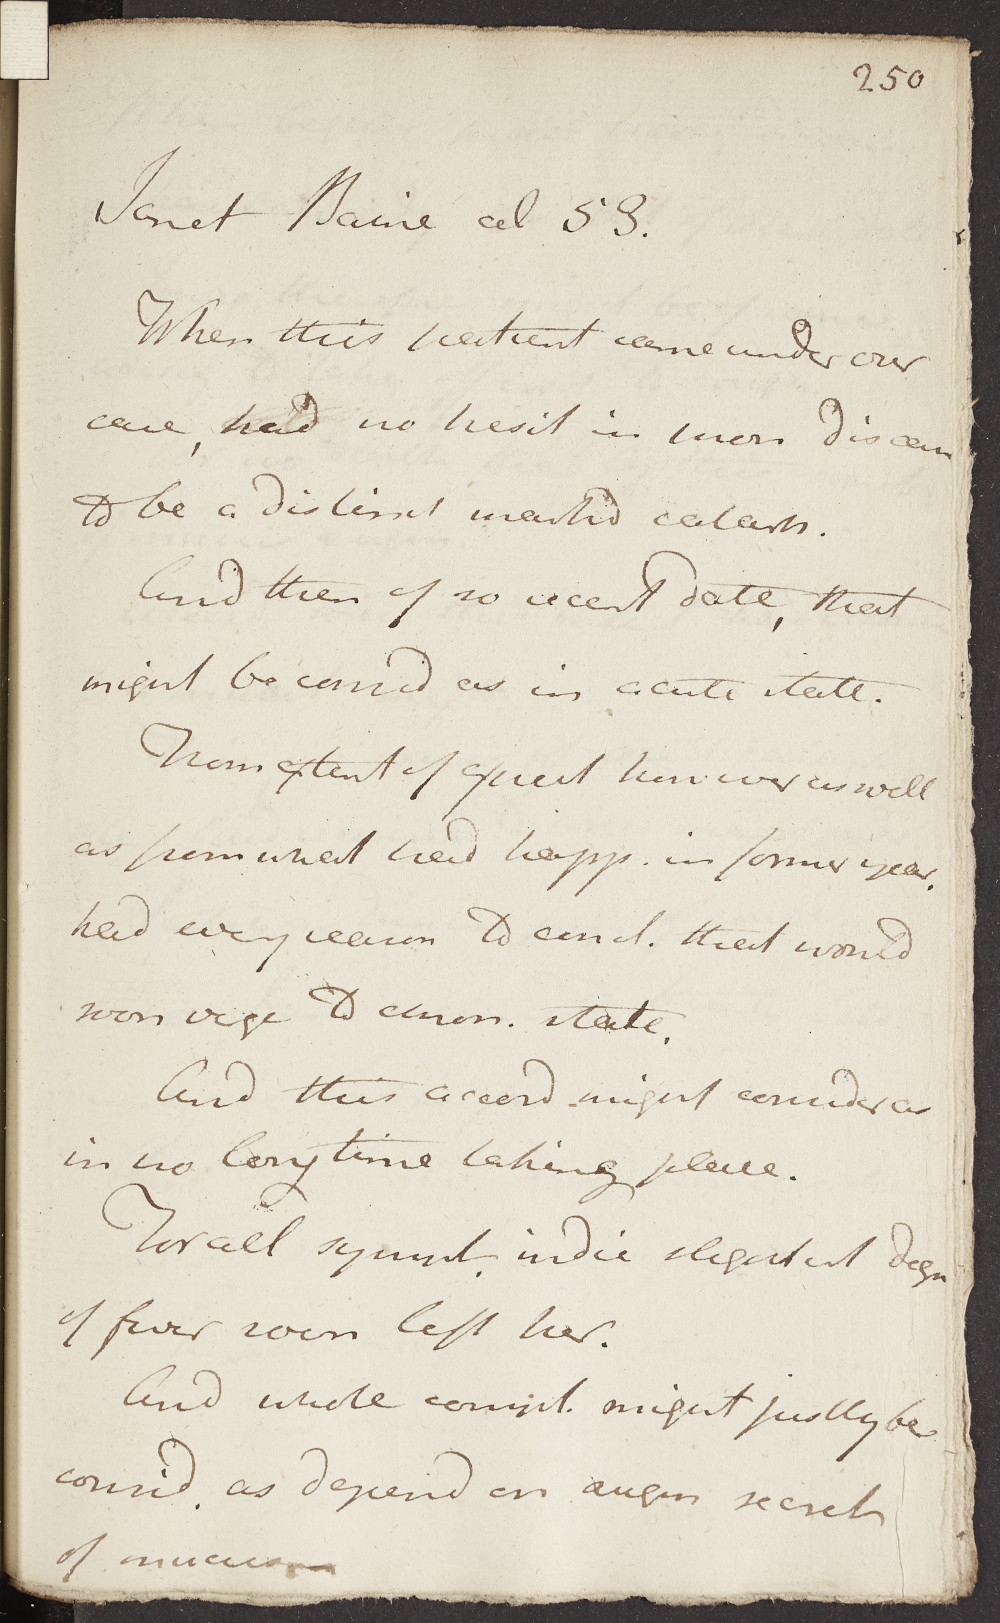 250
Janet Baine aet 53.
When this patient came under our
care, had no hesit in pron diseas
to be a distinct markd catarh.
And then of so recent date, that
might be consid as in acute state.
From extent of expect however as well
as from what had happ. in former year.
had every reason to concl. that would
soon verge to chron. state.
And this accord might consider as
in no long time taking place.
For all sympt. indic slightest degr
of fever soon left her.
And whole compl. might justly be
consid. as depend on augm secret
of mucus